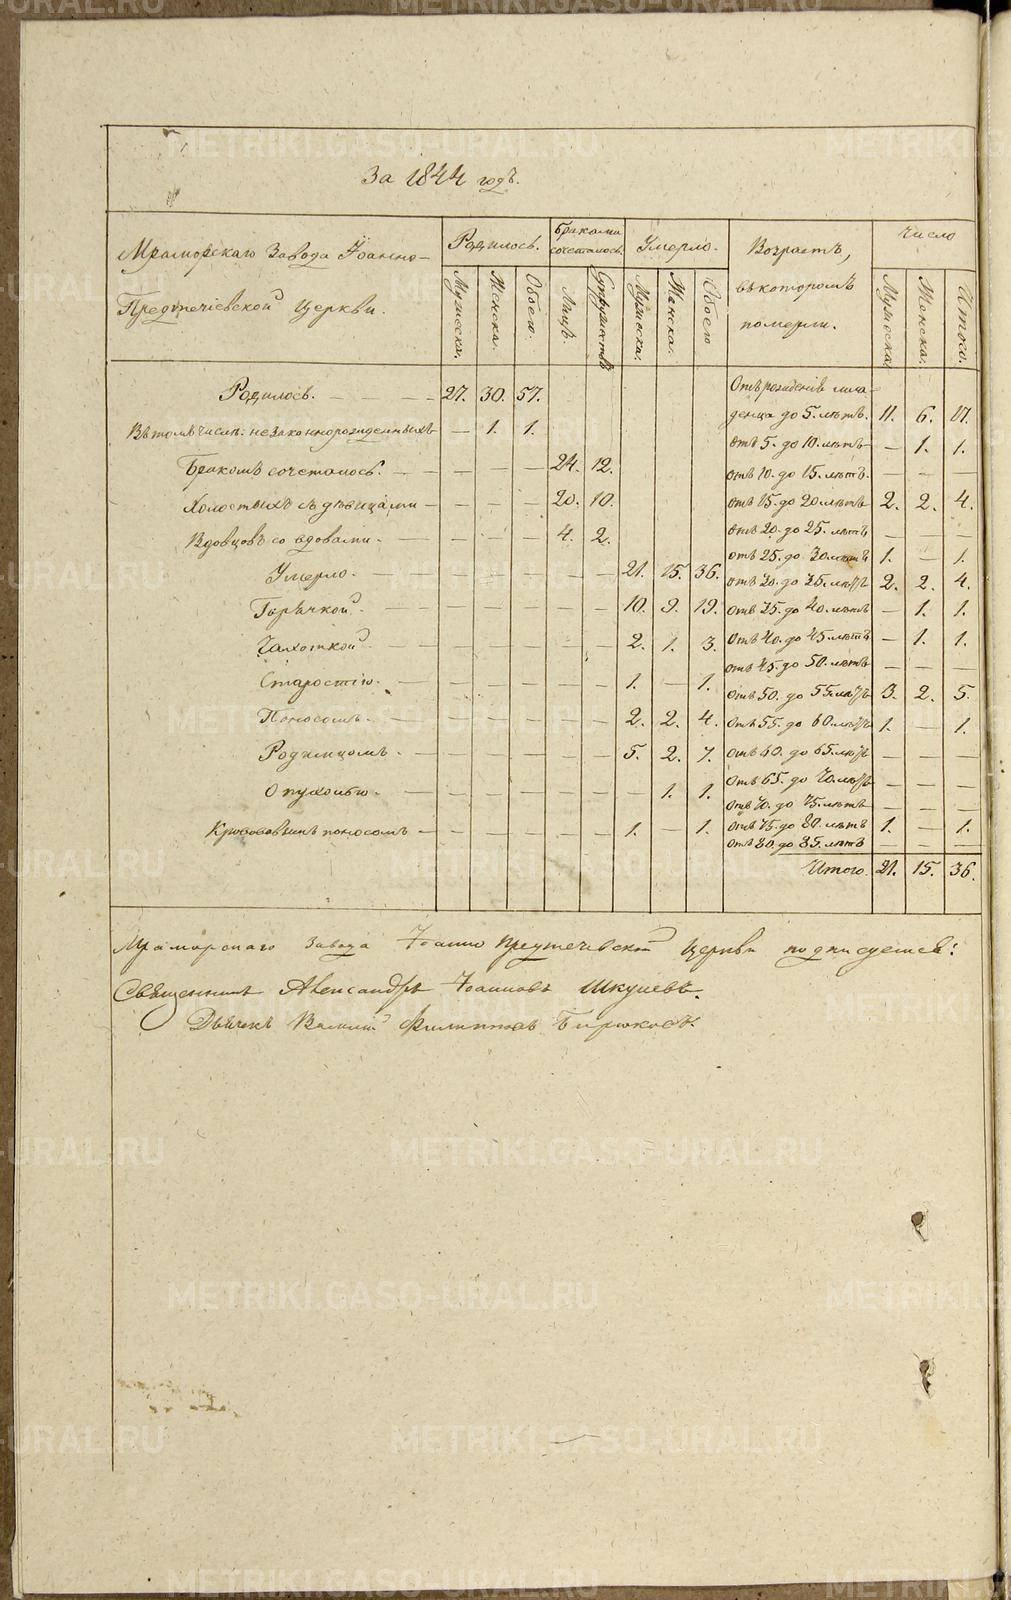 За 1844 годъ.
Мраморскаго Завода Іоанно-
Предтечіевской Церкви.
Родилось. Бракомъ сочеталось. Умерло. Возрастъ, въ которомъ померли. Число
Мужеска. Женска. Обоего. Лицъ. Супружествъ Мужеска. Женска. Обоего Мужеска. Женска. Итого.
Родилось. — 27. 30. 57.
Въ томъ числѣ незаконнорожденныхъ — 1. 1.
Бракомъ сочеталось. — — — — 24. 12.
Холостыхъ съ дѣвицами — — — — 20. 10.
Вдовцовъ со вдовами. — — — — 4. 2.
Умерло. — — — — — — 21. 15. 36.
Горячкой. — — — — — — 10. 9. 19.
Чахоткой — — — — — — 2. 1. 3.
Старостію. — — — — — — 1. — 1.
Поносомъ. — — — — — — 2. 2. 4.
Родимцомъ. — — — — — — 5. 2. 7.
Опухолью. — — — — — — — 1. 1.
Кровавымъ поносомъ — — — — — — 1. 1.
Отъ рожденія мла-
денца до 5. лѣтъ. 11. 6. 17.
отъ 5. до 10. лѣтъ — 1. 1.
отъ 10. до 15. лѣтъ. — — —
отъ 15. до 20 лѣтъ 2. 2. 4.
отъ 20. до 25. лѣтъ — — —
отъ 25. до 30. лѣтъ 1. — 1.
отъ 30. до 35. лѣтъ 2. 2. 4.
отъ 35. до 40. лѣтъ — 1. 1.
отъ 40. до 45 лѣтъ — 1. 1.
отъ 45. до 50. лѣтъ — — —
отъ 50. до 55. лѣтъ 3. 2. 5.
отъ 55. до 60 лѣтъ 1. — 1.
отъ 60. до 65 лѣтъ — — —
отъ 65. до 70 лѣтъ — — —
отъ 70. до 75. лѣтъ — — —
отъ 75. до 80. лѣтъ 1. — 1.
отъ 80. до 85. лѣтъ — — —
Итого. 21. 15. 36.
Мраморскаго Завода Іоанно Предтечевской Церкви подписуемся:
Священникъ Александръ Іоанновъ Шкулевъ.
Дьячекъ Василій Филипповъ Бирюковъ.
METRIKI.GASO-URAL.RU